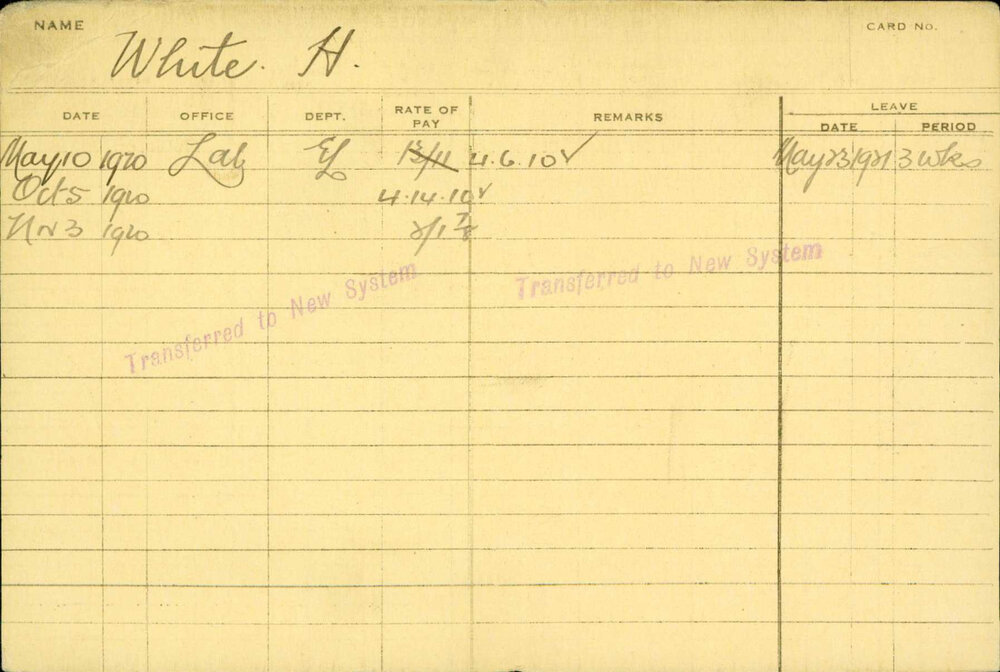 NAME CARD No.
White. H.
DATE OFFICE DEPT. RATE OF PAY REMARKS LEAVE
DATE PERIOD
May 10 1920 Lab 13/11 4.6.10 ✓ May 23 1921 3 wks
Oct 5 1920 4.14.10 ✓
Nov 3 1920
Transferred to New System
Transferred to New System